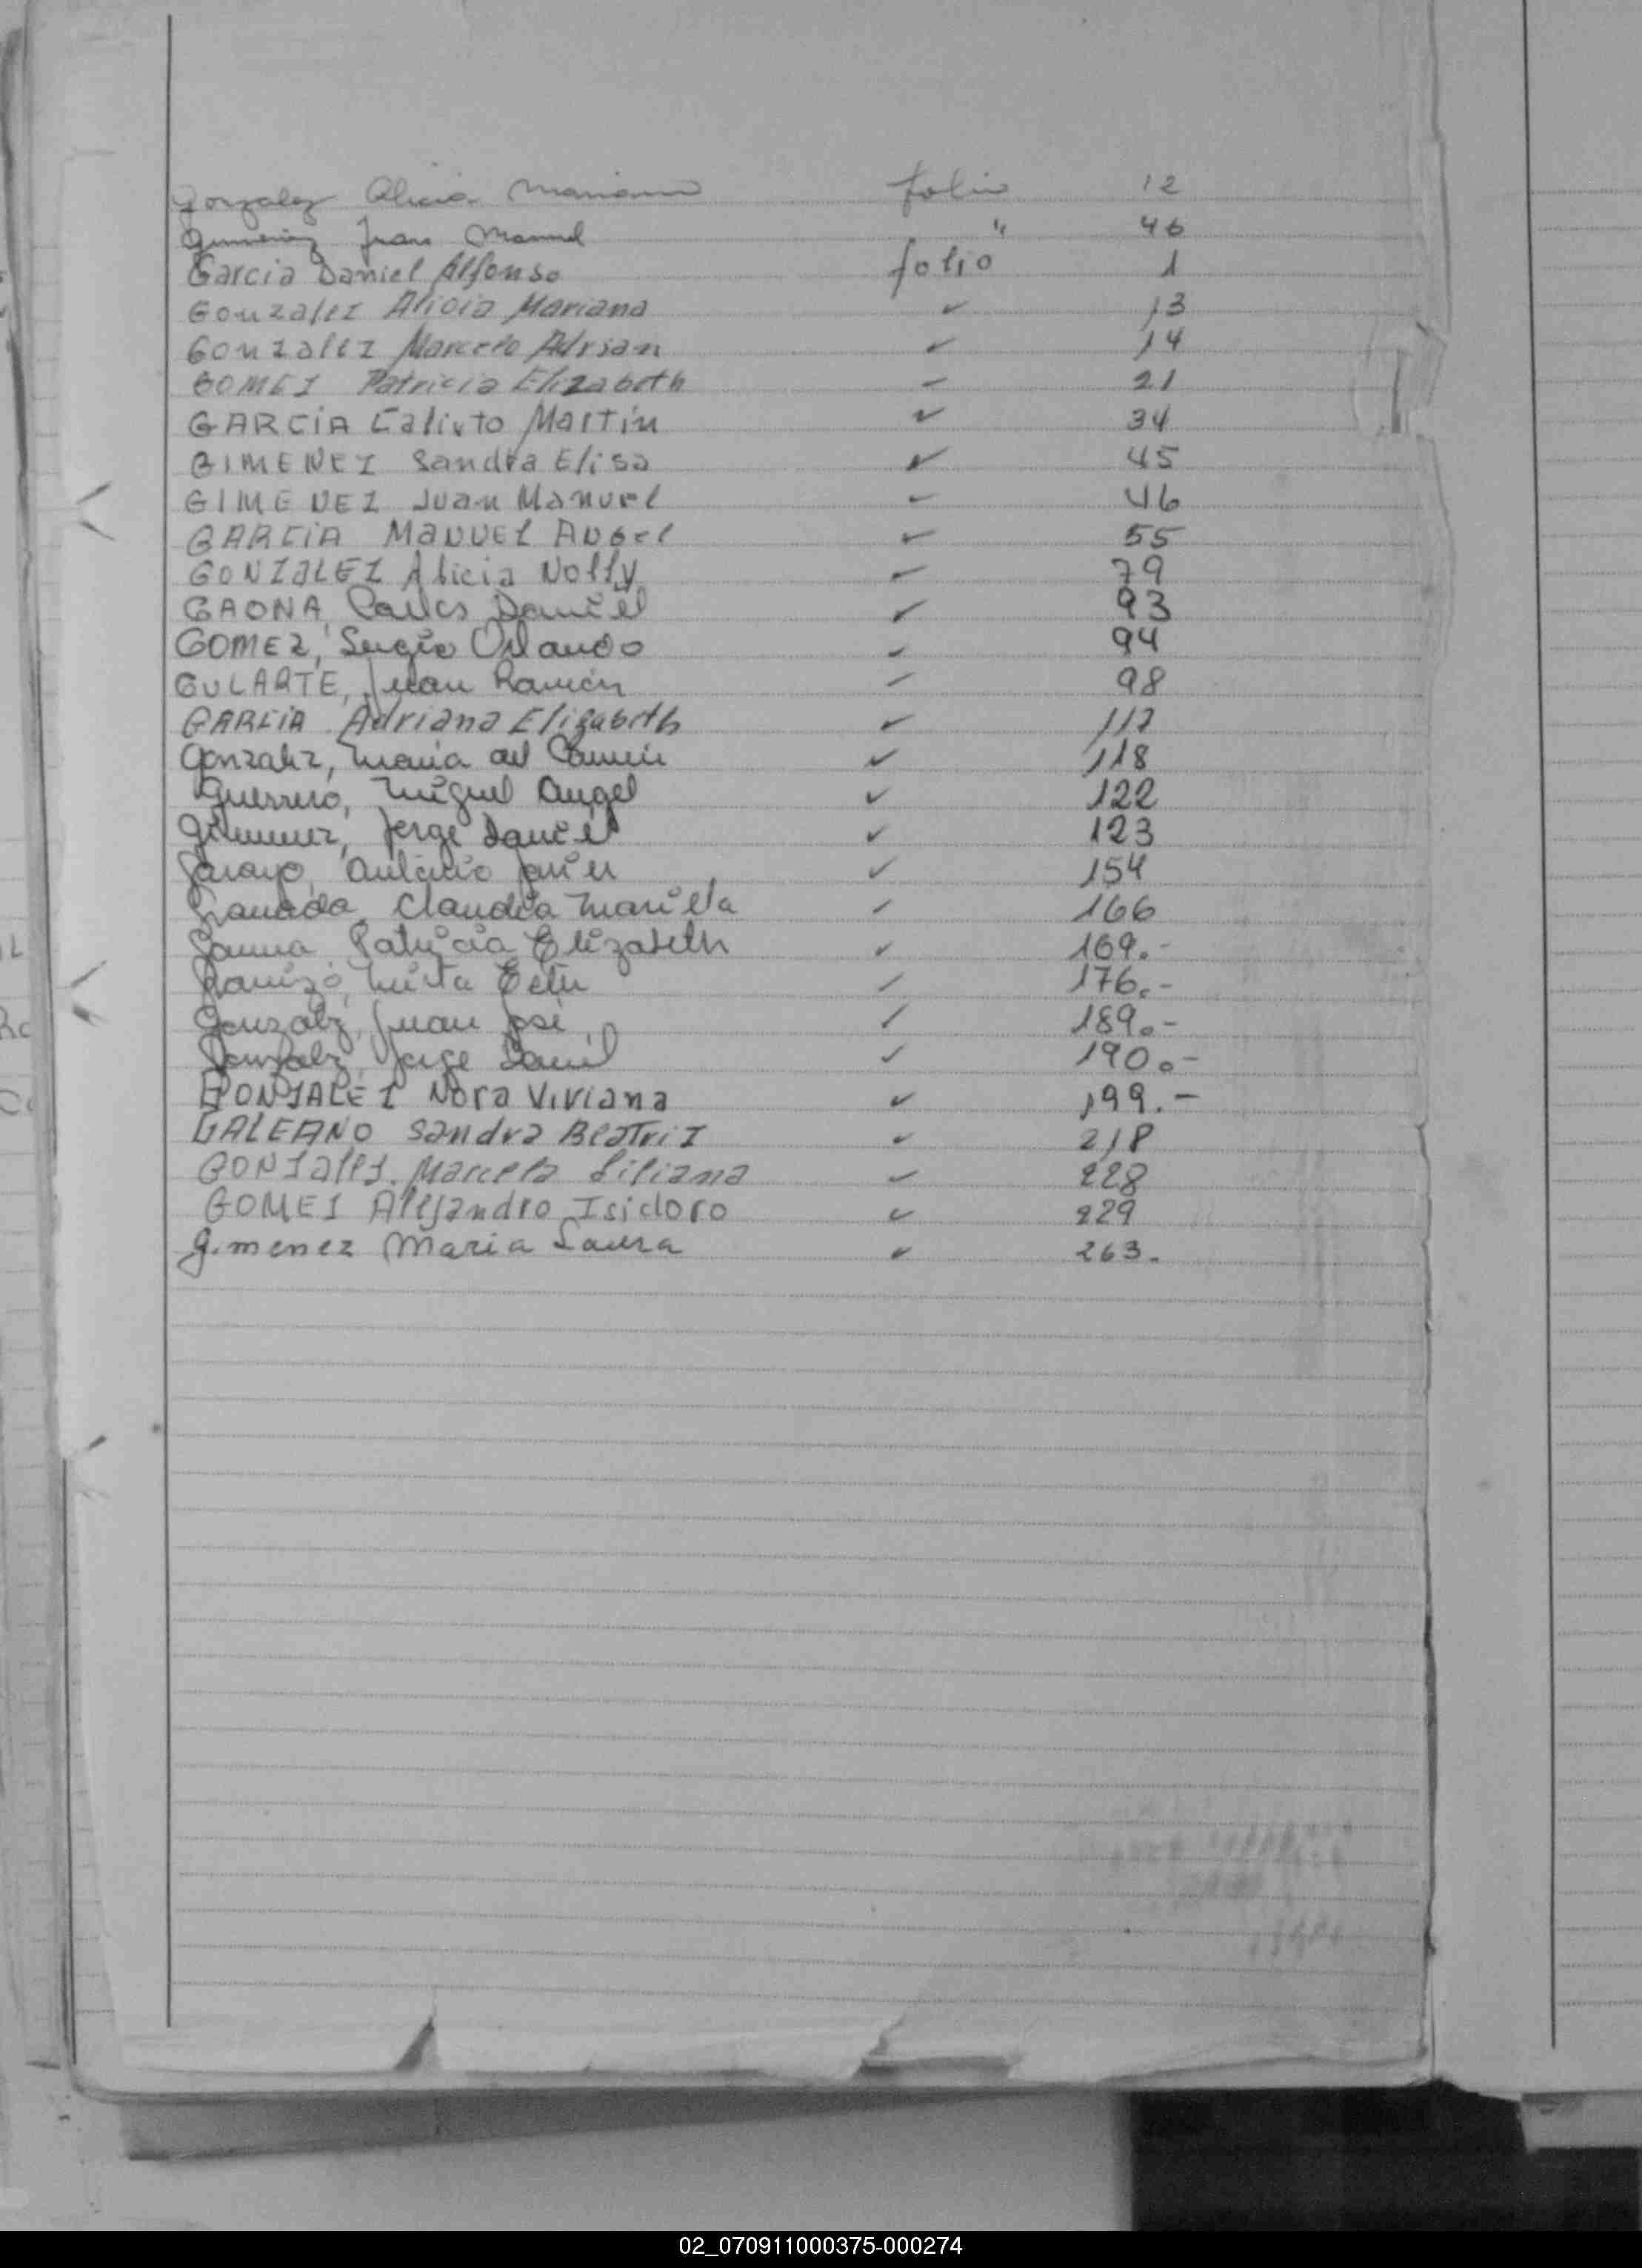 Gonzalez Alicia Mariana folio 12
Gimenez Juan Manuel " 46
Garcia Daniel Alfonso folio 1
Gonzalez Alicia Mariana ✓ 13
Gonzalez Marcelo Adrian ✓ 14
GOMEZ Patricia Elizabeth ✓ 21
GARCIA Calixto Martin ✓ 34
GIMENEZ Sandra Elisa ✓ 45
GIMENEZ Juan Manuel ✓ 46
GARCIA MANUEL ANGEL ✓ 55
GONZALEZ Alicia Nolly ✓ 79
GAONA, Carlos Daniel ✓ 93
GOMEZ, Sergio Orlando ✓ 94
GULARTE, Juan Ramón ✓ 98
GARCIA Adriana Elizabeth ✓ 117
Gonzalez, Maria del Carmen ✓ 118
Guerrero, Miguel Angel ✓ 122
Gimenez, Jorge Daniel ✓ 123
Garay, Antonio Javier ✓ 154
Granada, Claudia Mariela ✓ 166
Patricia Elizabeth ✓ 169.-
Mirta Ester ✓ 176.-
Gonzalez, Juan José ✓ 189.-
Gonzalez, Jorge Daniel ✓ 190.-
GONZALEZ Nora Viviana ✓ 199.-
GALEANO Sandra Beatriz ✓ 218
GONZALEZ. Marcela Liliana ✓ 228
GOMEZ Alejandro Isidoro ✓ 229
Gimenez Maria Laura ✓ 263.
02_070911000375-000274